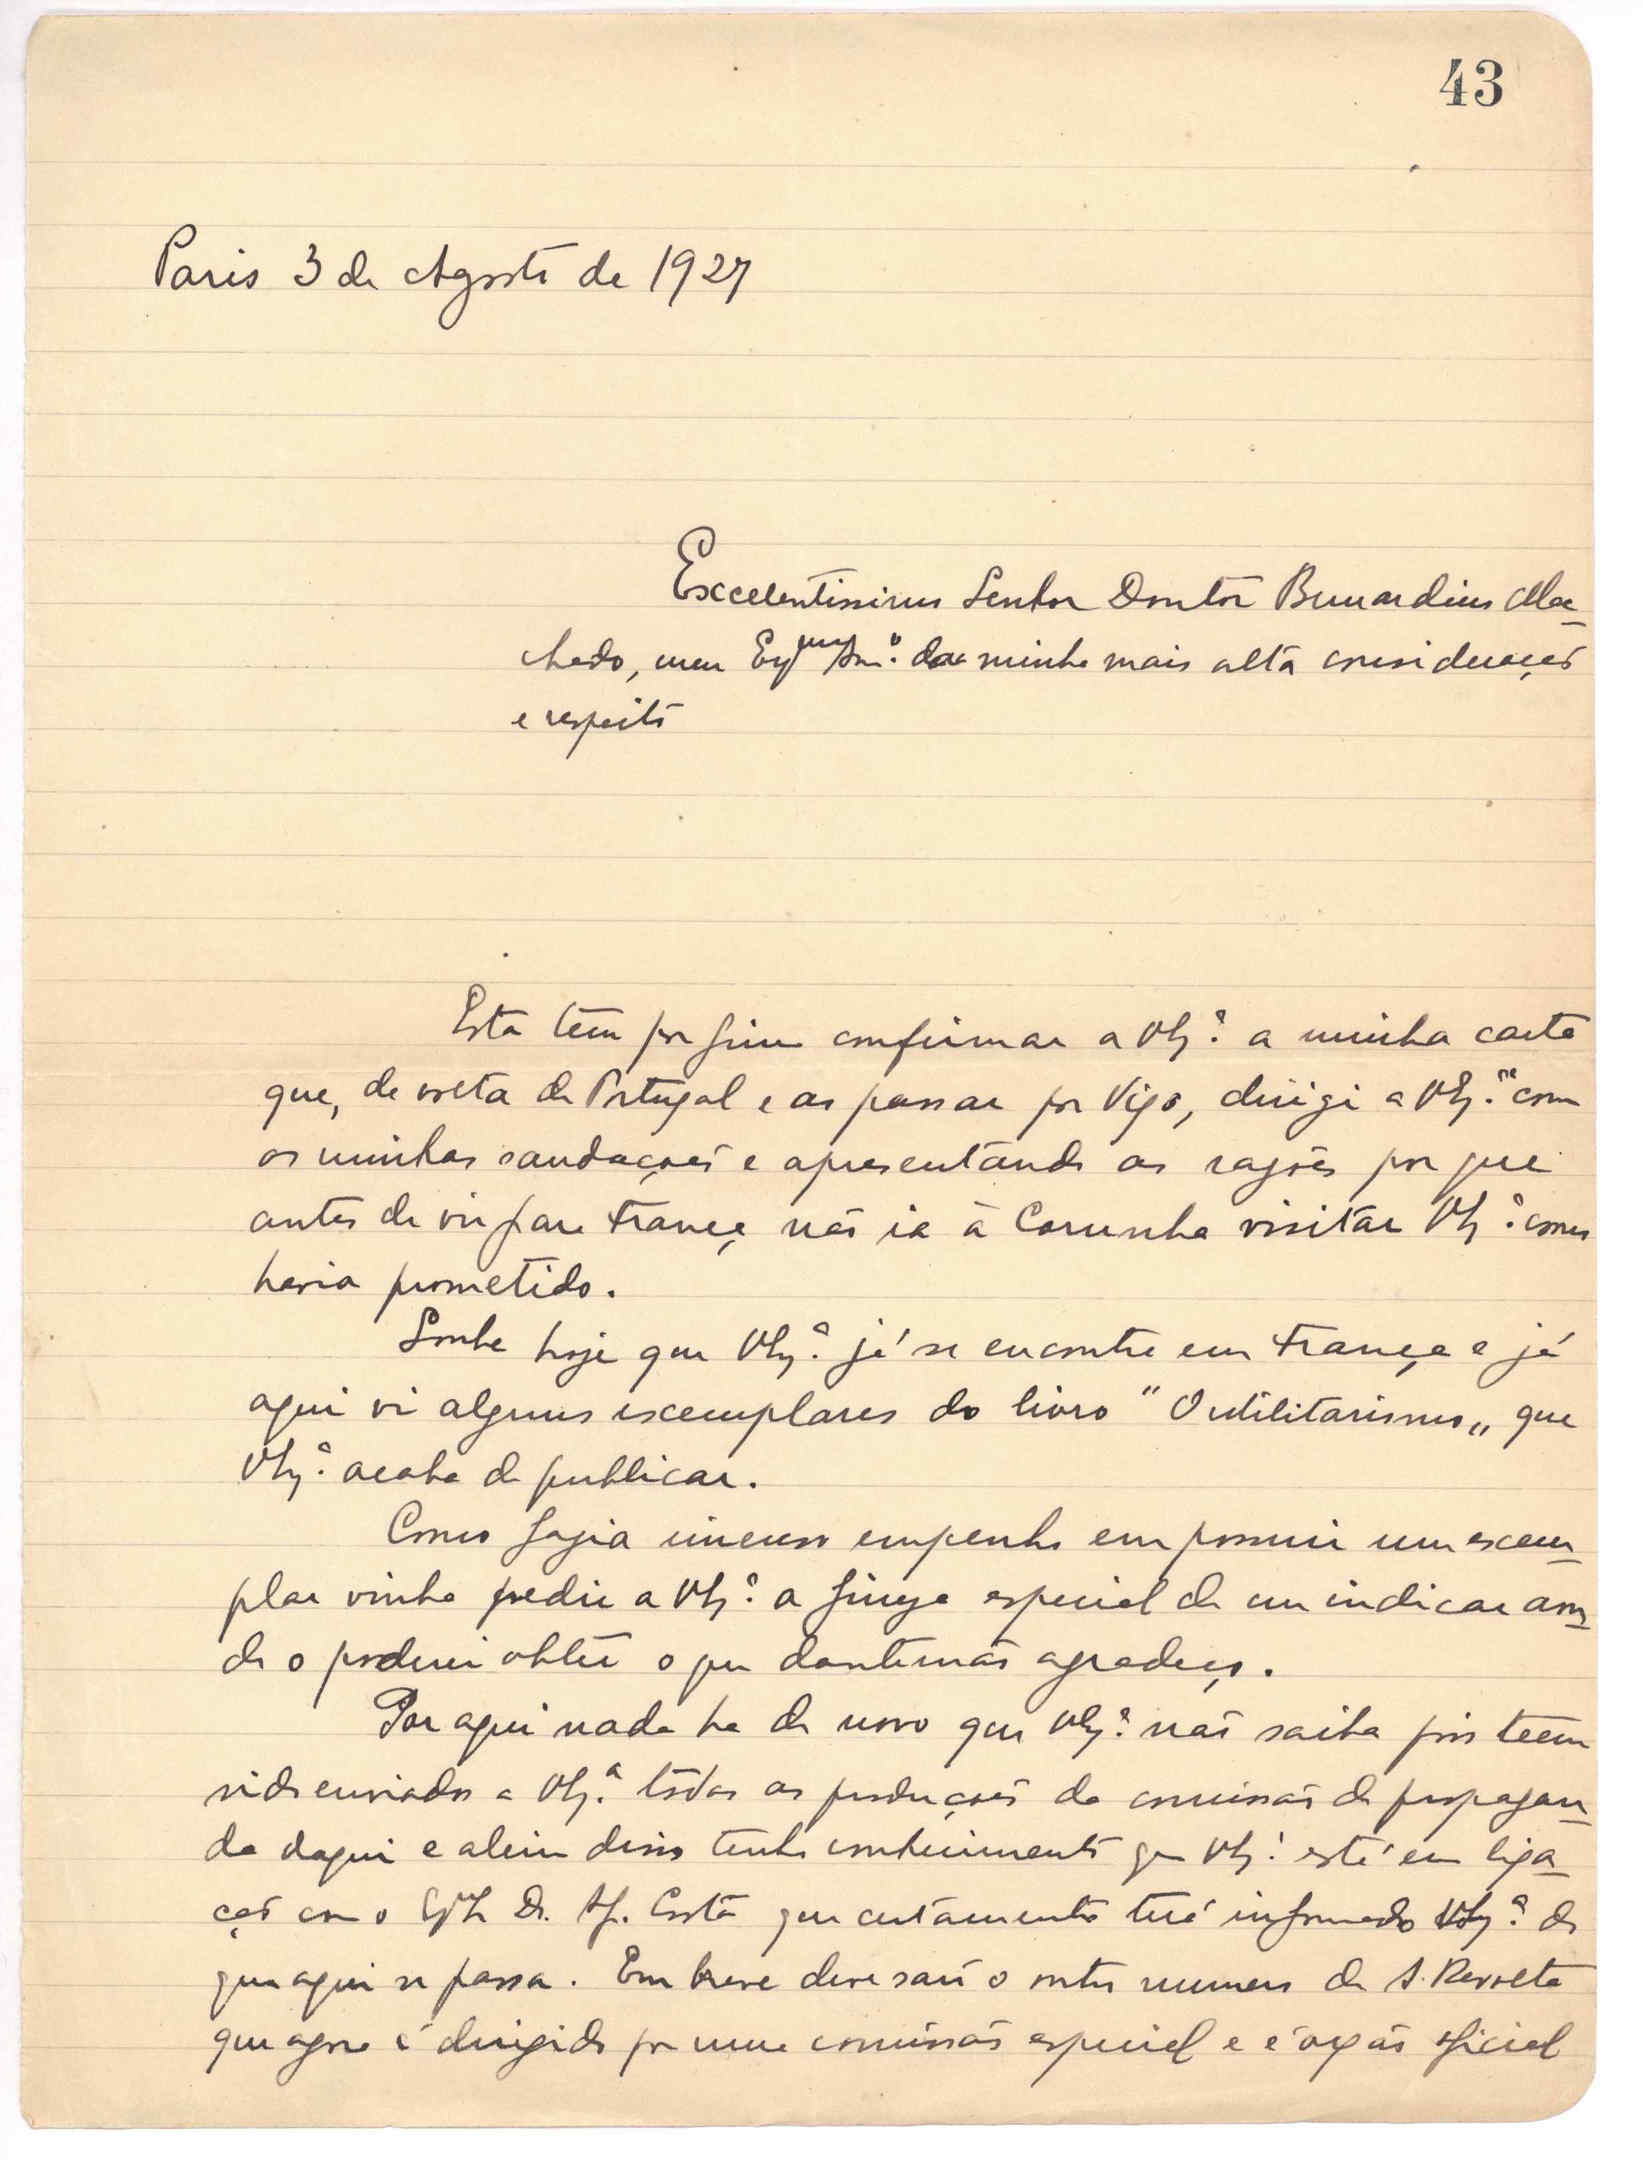 43
Paris 3 de Agosto de 1927
Excelentissimo Senhor Doutor Bernardino Ma-
chado, meu Exmo Amº. da minha mais alta consideração
e respeito
Esta tem por fim confirmar a V Exª. a minha carta
que, de volta de Portugal e ao passar por Vigo, dirigi a V Exª. com
as minhas saudações e apresentando as razões por que
antes de vir para França não ia à Corunha visitar V Exª. como
havia prometido.
Soube hoje que V Exª. já se encontra em França e já
aqui vi alguns exemplares do livro "O Militarismo„ que
V Exª. acaba de publicar.
Como fazia imenso empenho em possuir um exem-
plar vinha pedir a V Exª. a fineza especial de me indicar aon-
de o poderei obter o que dantemão agradeço.
Por aqui nada ha de novo que V Exª. não saiba pois teem
sido enviados a V Exª. todas as produções da comissão de propagan-
da daqui e alem disso tenho conhecimento que V Exª. está em liga-
ção com o Dr. Af. Costa que certamente terá informado V Exª. do
que aqui se passa. Em breve deve sair o outro numero de A Revolta
que agora é dirigido por uma comissão especial e é orgão oficial